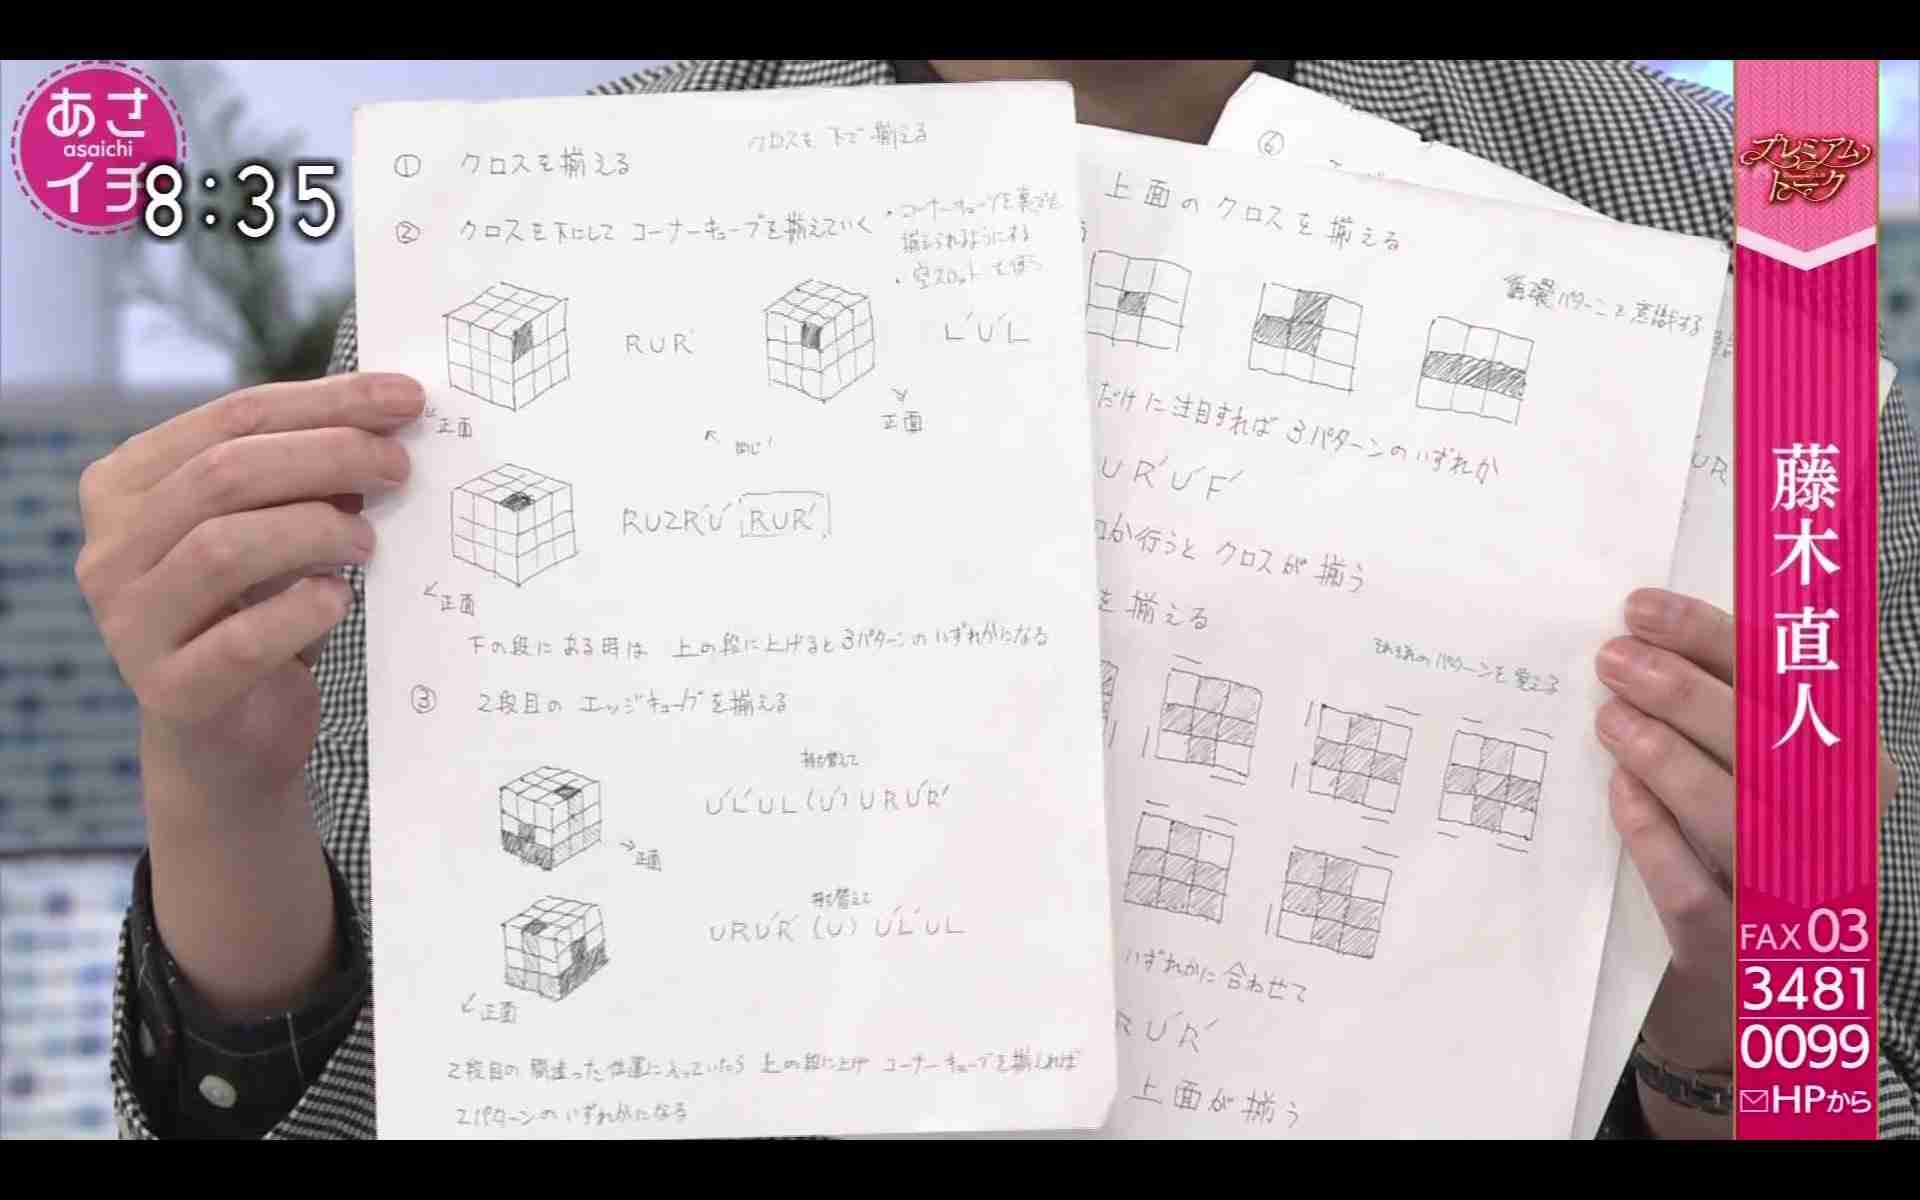 あさ
asaichi
イチ
8:35
プレミアム
トーク
藤木直人
FAX 03
3481
0099
HPから
① クロスを揃える
クロスを下で揃える
② クロスを下にして コーナーキューブを揃えていく
・コーナーキューブを
揃えられるようにする
・空スロットを使う
RUR'
L'U'L
正面
正面
同じ!
RU2R'U' RUR'
正面
下の段にある時は 上の段に上げると3パターンのいずれかになる
③ 2段目の エッジキューブを揃える
持ち替えて
U'L'UL(U')URU'R'
正面
持ち替えて
URU'R'(U)U'L'UL
正面
2段目の間違った位置に入っていたら 上の段に上げ コーナーキューブを揃えれば
2パターンのいずれかになる
⑥
上面のクロスを揃える
パターンを意識する
だけに注目すれば3パターンのいずれか
UR'U'F'
か行うと クロスが揃う
を揃える
それぞれのパターンを覚える
いずれかに合わせて
RU'R'
上面が揃う
UR